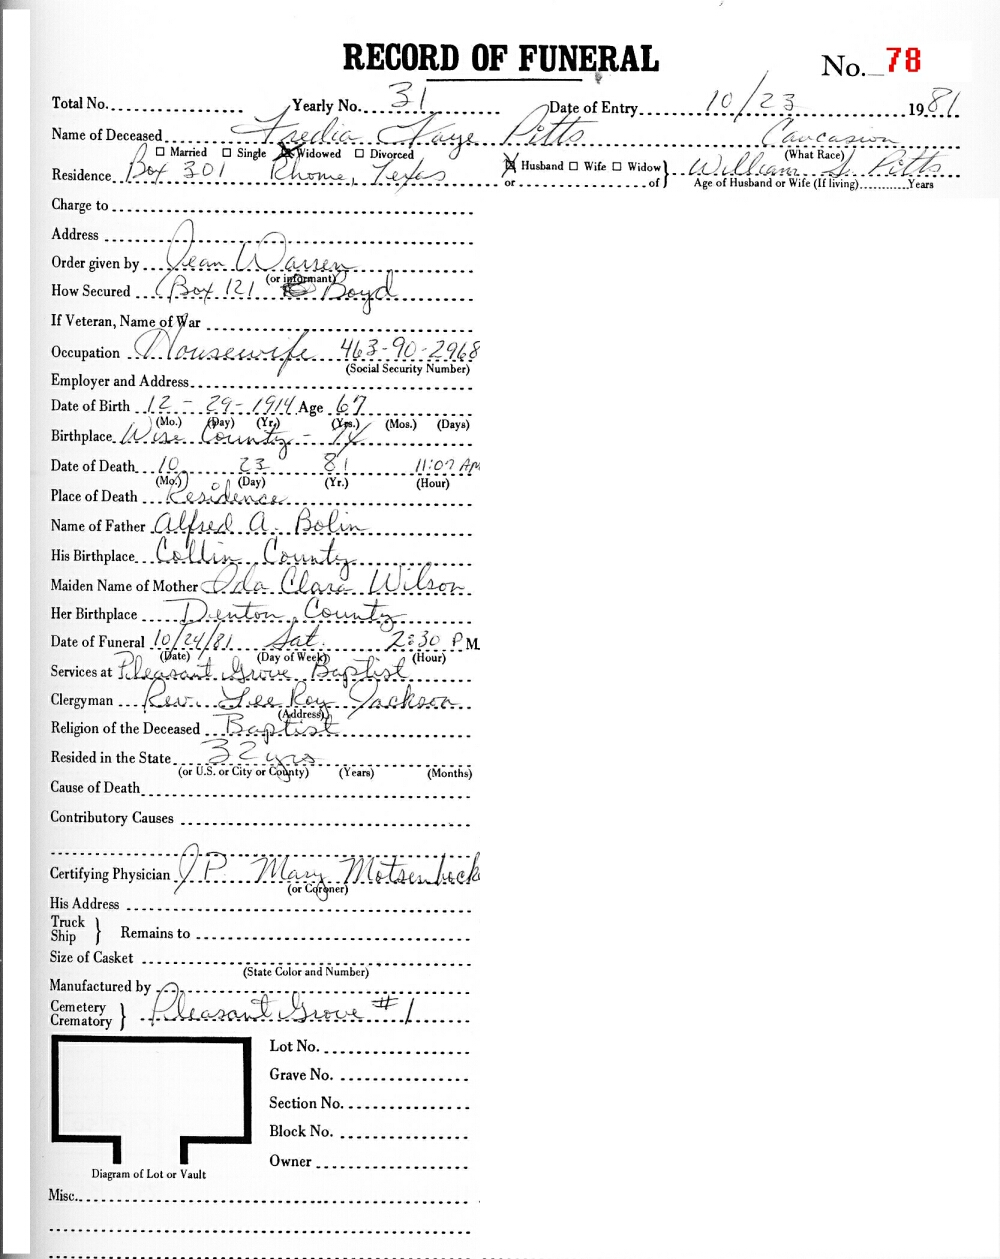 RECORD OF FUNERAL
No. 78
Total No. Yearly No. 31 Date of Entry 10/23 1981
Name of Deceased Fredia Faye Pitts Caucasion
☐ Married ☐ Single ☒ Widowed ☐ Divorced (What Race)
Residence Box 301 Rhome, Texas ☒ Husband ☐ Wife ☐ Widow } William S. Pitts
or of } Age of Husband or Wife (If living) Years
Charge to
Address
Order given by Jean Warren
(or informant)
How Secured Box 121 Boyd
If Veteran, Name of War
Occupation Housewife 463-90-2968
(Social Security Number)
Employer and Address
Date of Birth 12 - 29 - 1914 Age 67
(Mo.) (Day) (Yr.) (Yrs.) (Mos.) (Days)
Birthplace Wise County - TX
Date of Death 10 23 81 11:07 AM
(Mo.) (Day) (Yr.) (Hour)
Place of Death Residence
Name of Father Alfred A. Bolin
His Birthplace Collin County
Maiden Name of Mother Oda Clara Wilson
Her Birthplace Denton County
Date of Funeral 10/24/81 Sat. 2:30 P M.
(Date) (Day of Week) (Hour)
Services at Pleasant Grove Baptist
Clergyman Rev. Lee Roy Jackson
(Address)
Religion of the Deceased Baptist
Resided in the State 32 yrs
(or U.S. or City or County) (Years) (Months)
Cause of Death
Contributory Causes
Certifying Physician J.P. Mary Motsenbock
(or Coroner)
His Address
Truck
Ship } Remains to
Size of Casket
(State Color and Number)
Manufactured by
Cemetery
Crematory } Pleasant Grove #1
Lot No.
Grave No.
Section No.
Block No.
Owner
Diagram of Lot or Vault
Misc.